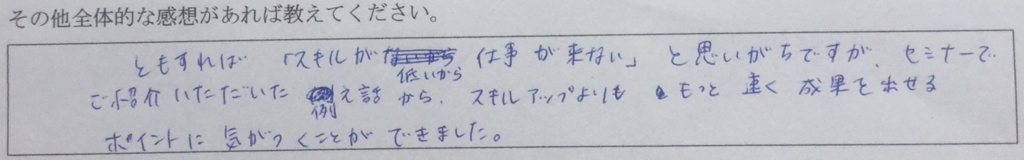 その他全体的な感想があれば教えてください。
ともすれば「スキルが低いから仕事が来ない」と思いがちですが、セミナーで
ご紹介いただいた例え話から、スキルアップよりももっと速く成果を出せる
ポイントに気がつくことができました。